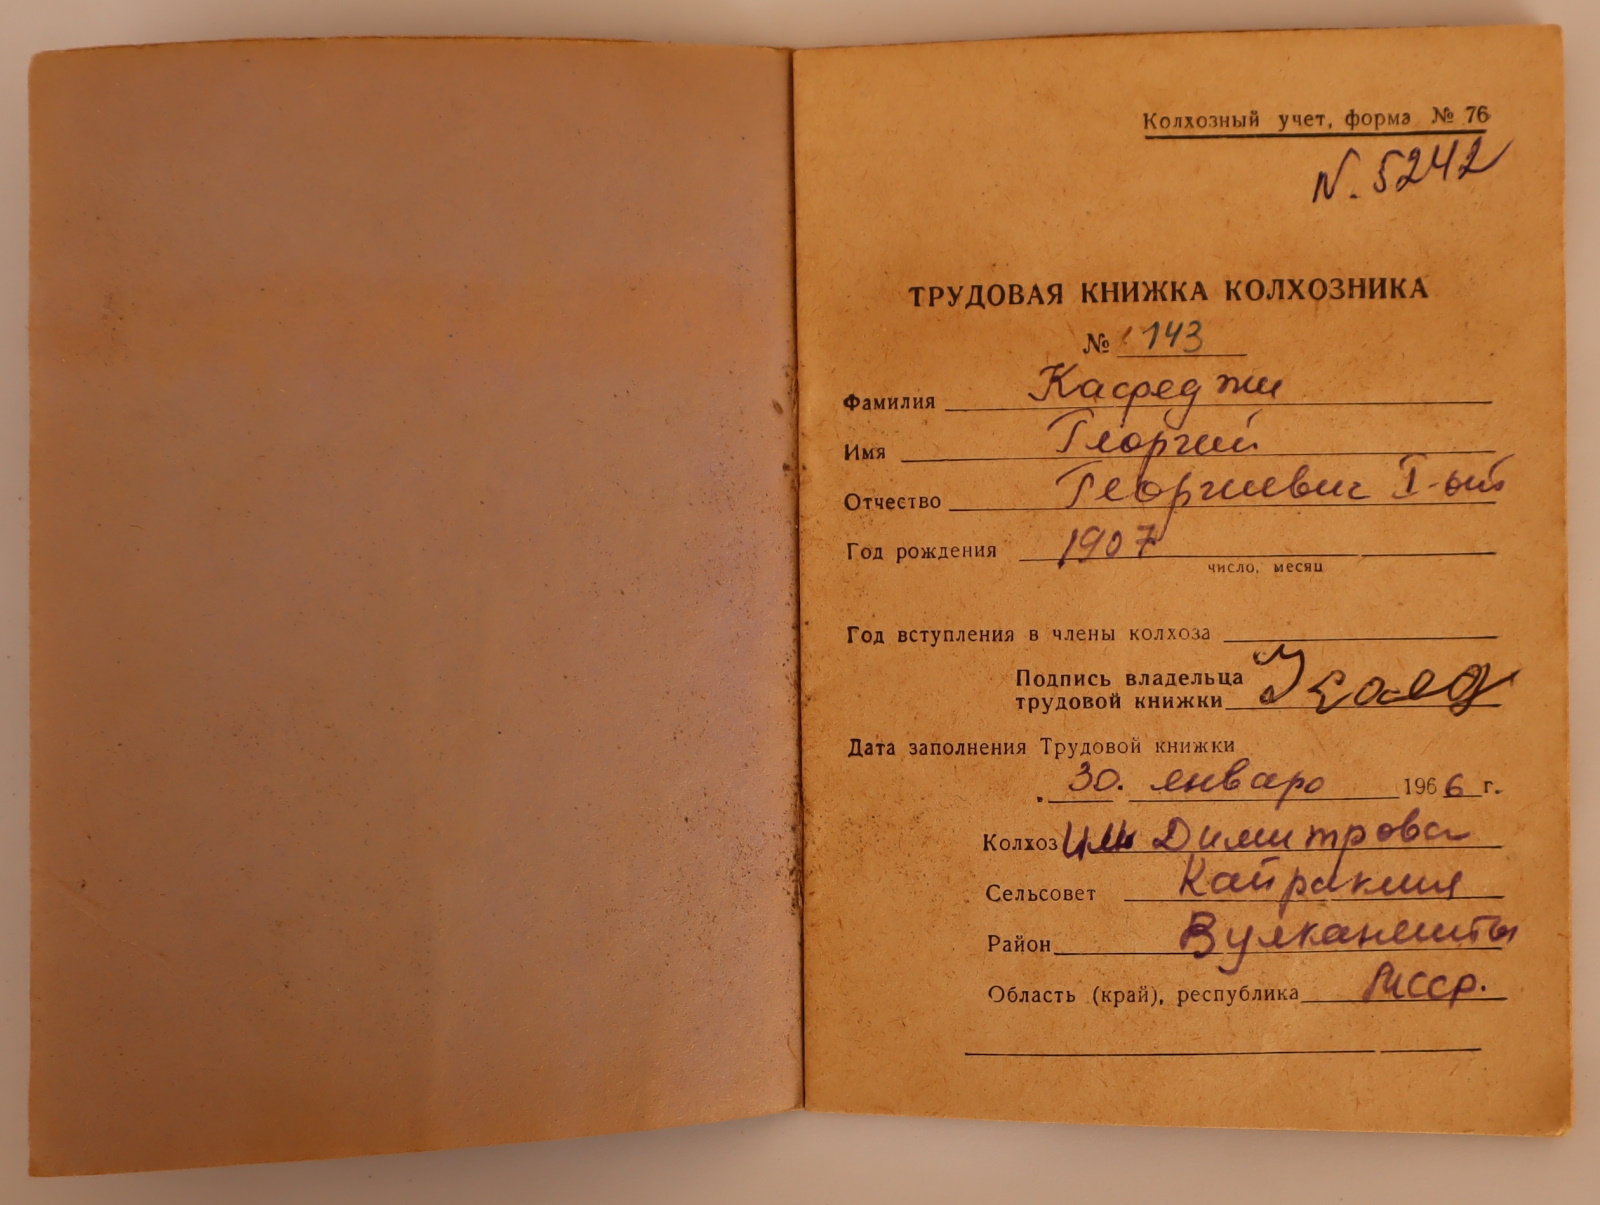 Колхозный учет, форма № 76
N. 5242
ТРУДОВАЯ КНИЖКА КОЛХОЗНИКА
№ 143
Фамилия Кафеджи
Имя Георгий
Отчество Георгиевич I-ый
Год рождения 1907
число, месяц
Год вступления в члены колхоза
Подпись владельца
трудовой книжки
Дата заполнения Трудовой книжки
30. январо 1966 г.
Колхоз им Димитрова
Сельсовет Кайраклия
Район Вулканешты
Область (край), республика МССР.